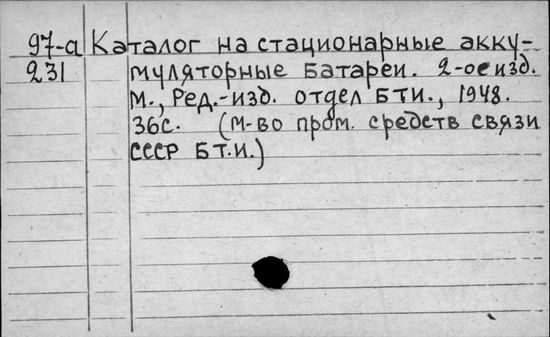 97-а Каталог на стационарные акку-
231 муляторные батареи. 2-ое изд.
М., Ред.-изд. отдел БТИ., 1948.
36с. (М-во пром. средств связи
СССР БТ.И.)